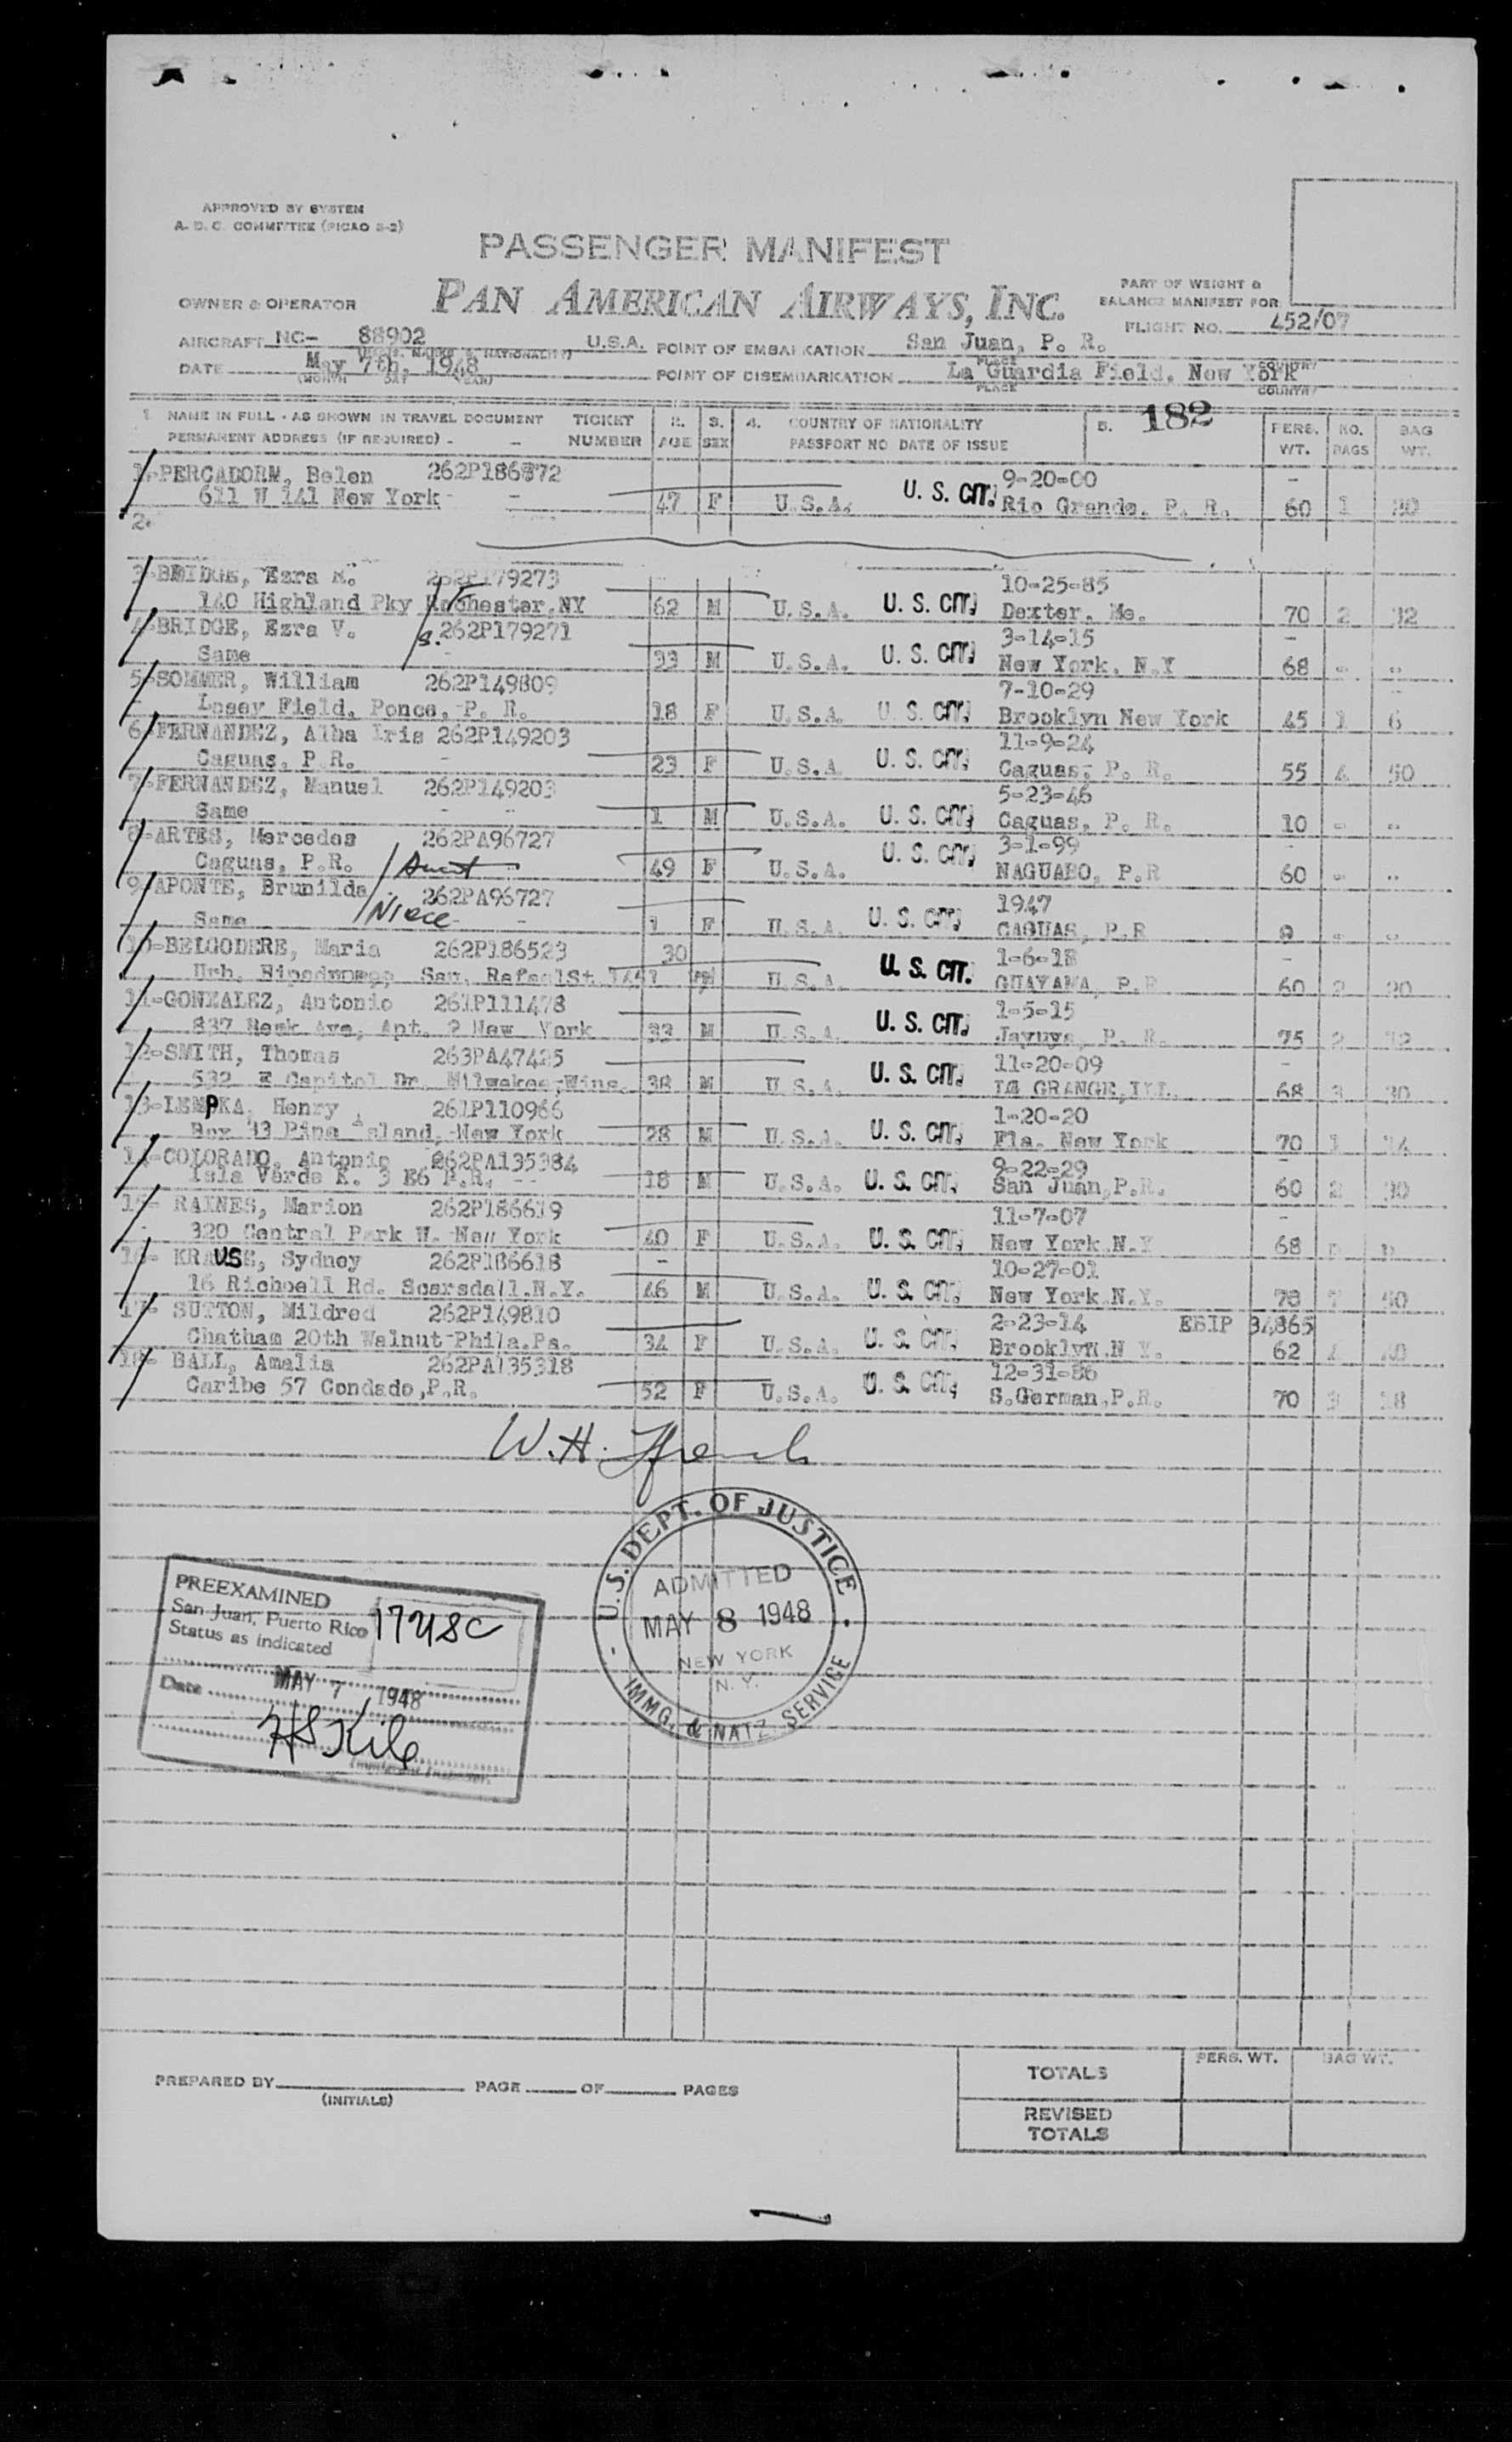 APPROVED BY SYSTEM
A. D. C. COMMITTEE (PICAO S-2)
PASSENGER MANIFEST
OWNER & OPERATOR PAN AMERICAN AIRWAYS, INC.
PART OF WEIGHT &
BALANCE MANIFEST FOR
FLIGHT NO. 452/07
AIRCRAFT NC- 88902 U.S.A. POINT OF EMBARKATION San Juan, P. R.
(REGIS. MARKS & NATIONALITY) PLACE COUNTRY
DATE May 7th, 1948 POINT OF DISEMBARKATION La Guardia Field, New York
(MONTH DAY YEAR) PLACE COUNTRY
1 NAME IN FULL - AS SHOWN IN TRAVEL DOCUMENT TICKET 2. 3. 4. COUNTRY OF NATIONALITY 5. 182 PERS. NO. BAG
PERMANENT ADDRESS (IF REQUIRED) - - NUMBER AGE SEX PASSPORT NO DATE OF ISSUE WT. BAGS WT.
1-PERCADORM, Belen 262P186872 9-20-00 -
611 W 141 New York - - 47 F U.S.A. U. S. CIT. Rio Grande, P. R. 60 1
2-
3-BRIDGE, Ezra R. 262P179273 10-25-85
140 Highland Pky Rochester,NY F 62 M U.S.A. U. S. CIT. Dexter, Me. 70 2 32
4-BRIDGE, Ezra V. s. 262P179271 3-14-15 -
Same - 33 M U.S.A. U. S. CIT. New York, N.Y 68 - -
5-SOMMER, William 262P149809 7-10-29 -
Losey Field, Ponce, P. R. 18 F U.S.A. U. S. CIT. Brooklyn New York 45 1 6
6-FERNANDEZ, Alba Iris 262P149203 11-9-24
Caguas, P.R. - 23 F U.S.A. U. S. CIT. Caguas, P. R. 55 4 50
7-FERNANDEZ, Manuel 262P149203 5-23-46
Same - - 1 M U.S.A. U. S. CIT. Caguas, P. R. 10 - -
8-ARTES, Mercedes 262PA96727 3-1-99 -
Caguas, P.R. Aunt 49 F U.S.A. U. S. CIT. NAGUABO, P.R 60 - -
9-APONTE, Brunilda 262PA96727 1947
Same Niece - - 1 F U.S.A. U. S. CIT. CAGUAS, P.R - -
10-BELGODERE, Maria 262P186523 30 1-6-18 -
Urb. San. RafaelSt. U.S.A. U. S. CIT. GUAYAMA, P.R 60 2
11-GONZALEZ, Antonio 261P111478 1-5-15
837 Ave, Apt. 2 New York 33 M U.S.A. U. S. CIT. Jayuya, P. R. 75 2
12-SMITH, Thomas 263PA47425 11-20-09 -
532 E Capitol Dr. 38 M U.S.A. U. S. CIT. LA GRANGE,ILL. 68 3 30
13-LEMPKA, Henry 261P110966 1-20-20
Box Pine Island, New York 28 M U.S.A. U. S. CIT. Fla. New York 70 1
14-COLORADO, Antonio 262PA135384 9-22-29 -
Isla Verde K. 3 E6 P.R. -- 18 M U.S.A. U. S. CIT. San Juan,P.R. 60 2 30
15- RAINES, Marion 262P186619 11-7-07 -
320 Central Park W. New York 40 F U.S.A. U. S. CIT. New York,N.Y 68
16- KRAUSE, Sydney 262P186618 - 10-27-01
16 Richbell Rd. Scarsdall.N.Y. 46 M U.S.A. U. S. CIT. New York,N.Y. 78
17- SUTTON, Mildred 262P149810 2-23-14 EBIP 34865
Chatham 20th Walnut-Phila.Pa. 34 F U.S.A. U. S. CIT. Brooklyn,N Y. 62
18- BALL, Amalia 262PA135318 12-31-86
Caribe 57 Condado,P.R. 52 F U.S.A. U. S. CIT. S.German,P.R. 70 3
W. H. French
U.S. DEPT. OF JUSTICE
ADMITTED
MAY 8 1948
NEW YORK
N. Y.
IMMG. & NATZ SERVICE
PREEXAMINED
San Juan, Puerto Rico
17USC
Status as indicated
MAY 7 1948
Date
HS Kile
Immigrant Inspector
PREPARED BY PAGE OF PAGES
(INITIALS)
PERS. WT. BAG WT.
TOTALS
REVISED
TOTALS